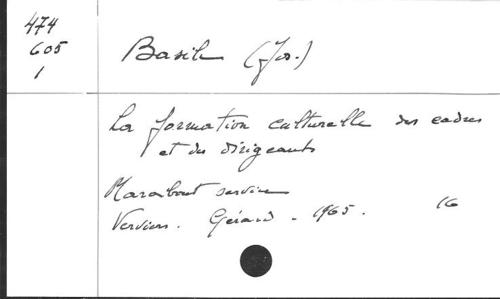 474
605
1
Basile (Jos.)
La formation culturelle des cadres
et des dirigeants
Marabout service
Verviers. Gérard - 1965. 16